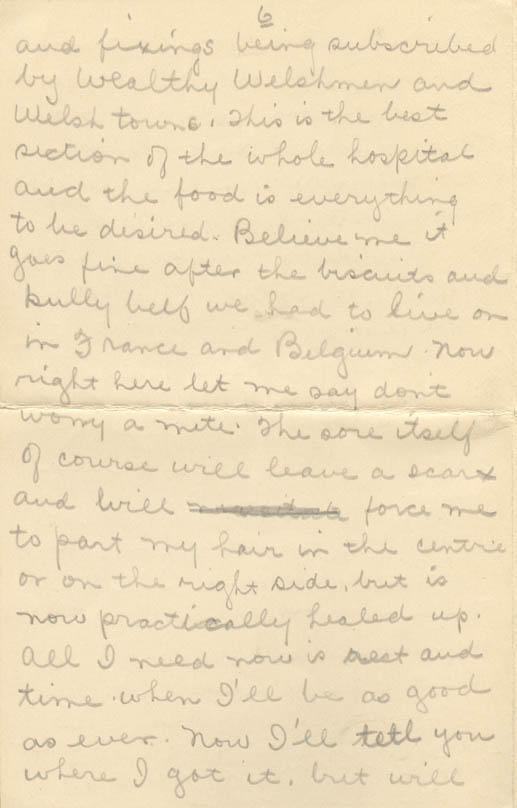 6
and fixings being subscribed
by Wealthy Welshmen and
Welsh towns. This is the best
section of the whole hospital
and the food is everything
to be desired. Believe me it
goes fine after the biscuits and
bully beef we had to live on
in France and Belgium. Now
right here let me say don't
worry a mite. The sore itself
of course will leave a scar
and will force me
to part my hair in the centre
or on the right side, but is
now practically healed up.
All I need now is rest and
time when I'll be as good
as ever. Now I'll tell you
where I got it, but will